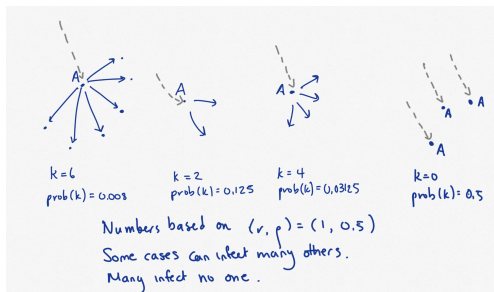 A
A
A
A
A
A
k=6
prob(k)=0.008
k=2
prob(k)=0.125
k=4
prob(k)=0.03125
k=0
prob(k)=0.5
Numbers based on (r, p) = (1, 0.5)
Some cases can infect many others.
Many infect no one.